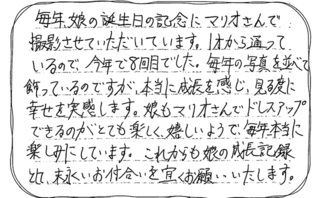 毎年、娘の誕生日の記念にマリオさんで
撮影させていただいています。1才から通って
いるので、今年で8回目でした。毎年の写真を並べて
飾っているのですが、本当に成長を感じ、見る度に
幸せを実感します。娘もマリオさんでドレスアップ
できるのがとても楽しく、嬉しいようで、毎年本当に
楽しみにしています。これからも娘の成長記録
とし、末永いお付合いを宜くお願いいたします。